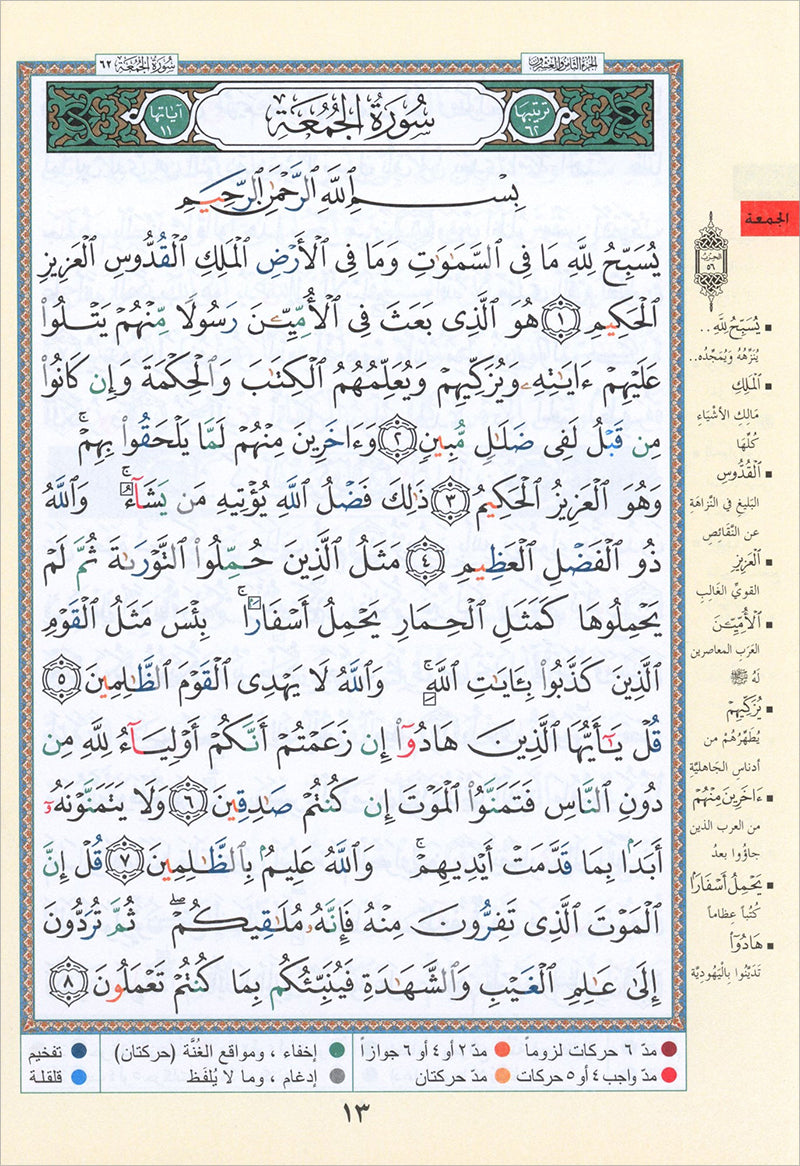 الجزء الثامن والعشرون
سورة الجمعة ٦٢
ترتيبها ٦٢
سُورَةُ الجُمُعَةِ
آياتها ١١
بِسْمِ ٱللَّهِ ٱلرَّحْمَٰنِ ٱلرَّحِيمِ
يُسَبِّحُ لِلَّهِ مَا فِى ٱلسَّمَٰوَٰتِ وَمَا فِى ٱلْأَرْضِ ٱلْمَلِكِ ٱلْقُدُّوسِ ٱلْعَزِيزِ
ٱلْحَكِيمِ ١ هُوَ ٱلَّذِى بَعَثَ فِى ٱلْأُمِّيِّـۧنَ رَسُولًا مِّنْهُمْ يَتْلُوا۟
عَلَيْهِمْ ءَايَٰتِهِۦ وَيُزَكِّيهِمْ وَيُعَلِّمُهُمُ ٱلْكِتَٰبَ وَٱلْحِكْمَةَ وَإِن كَانُوا۟
مِن قَبْلُ لَفِى ضَلَٰلٍ مُّبِينٍ ٢ وَءَاخَرِينَ مِنْهُمْ لَمَّا يَلْحَقُوا۟ بِهِمْ ۚ
وَهُوَ ٱلْعَزِيزُ ٱلْحَكِيمُ ٣ ذَٰلِكَ فَضْلُ ٱللَّهِ يُؤْتِيهِ مَن يَشَآءُ ۚ وَٱللَّهُ
ذُو ٱلْفَضْلِ ٱلْعَظِيمِ ٤ مَثَلُ ٱلَّذِينَ حُمِّلُوا۟ ٱلتَّوْرَىٰةَ ثُمَّ لَمْ
يَحْمِلُوهَا كَمَثَلِ ٱلْحِمَارِ يَحْمِلُ أَسْفَارًۢا ۚ بِئْسَ مَثَلُ ٱلْقَوْمِ
ٱلَّذِينَ كَذَّبُوا۟ بِـَٔايَٰتِ ٱللَّهِ ۚ وَٱللَّهُ لَا يَهْدِى ٱلْقَوْمَ ٱلظَّٰلِمِينَ ٥
قُلْ يَٰٓأَيُّهَا ٱلَّذِينَ هَادُوٓا۟ إِن زَعَمْتُمْ أَنَّكُمْ أَوْلِيَآءُ لِلَّهِ مِن
دُونِ ٱلنَّاسِ فَتَمَنَّوُا۟ ٱلْمَوْتَ إِن كُنتُمْ صَٰدِقِينَ ٦ وَلَا يَتَمَنَّوْنَهُۥٓ
أَبَدًۢا بِمَا قَدَّمَتْ أَيْدِيهِمْ ۚ وَٱللَّهُ عَلِيمٌۢ بِٱلظَّٰلِمِينَ ٧ قُلْ إِنَّ
ٱلْمَوْتَ ٱلَّذِى تَفِرُّونَ مِنْهُ فَإِنَّهُۥ مُلَٰقِيكُمْ ۖ ثُمَّ تُرَدُّونَ
إِلَىٰ عَٰلِمِ ٱلْغَيْبِ وَٱلشَّهَٰدَةِ فَيُنَبِّئُكُم بِمَا كُنتُمْ تَعْمَلُونَ ٨
الجمعة
الحزب ٥٦
يُسَبِّحُ لِلَّهِ..
يُنَزِّهُهُ وَيُمَجِّدُه..
ٱلْمَلِكِ
مَالِكِ الأَشْيَاءِ
كُلِّهَا
ٱلْقُدُّوسِ
البَلِيغِ فِي النَّزَاهَةِ
عن النَّقَائِصِ
ٱلْعَزِيزِ
القويِّ الغَالِبِ
ٱلْأُمِّيِّـۧنَ
العَرَب المعاصرين
لَهُ ﷺ
يُزَكِّيهِمْ
يُطَهِّرُهُمْ من
أدناس الجَاهليَّةِ
ءَاخَرِينَ مِنْهُمْ
من العرب الذين
جاؤُوا بعدُ
يَحْمِلُ أَسْفَارًا
كُتُباً عِظاماً
هَادُوٓا۟
تَدَيَّنُوا بِالْيَهُودِيَّة
مدّ ٦ حركات لزوماً
مدّ ٢ أو ٤ أو ٦ جوازاً
إخفاء ، ومواقع الغُنَّة (حركتان)
تفخيم
مدّ واجب ٤ أو ٥ حركات
مدّ حركتان
إدغام ، وما لا يُلفَظ
قلقلة
١٣